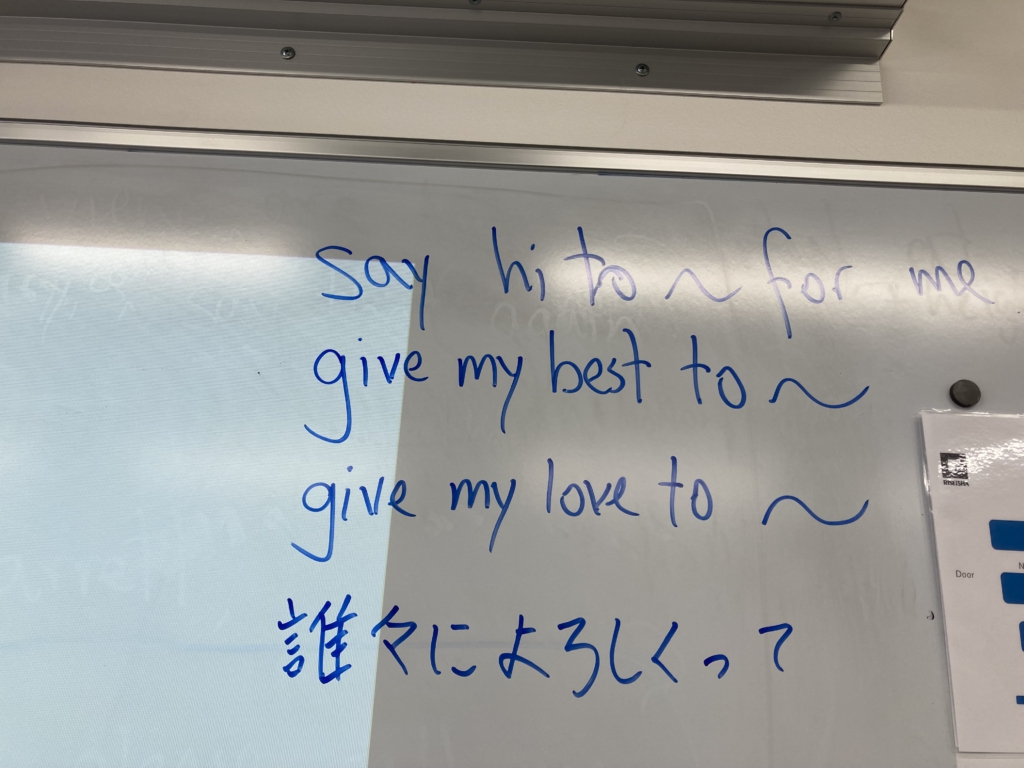 say hi to ～ for me
give my best to ～
give my love to ～
誰々によろしくって
Door